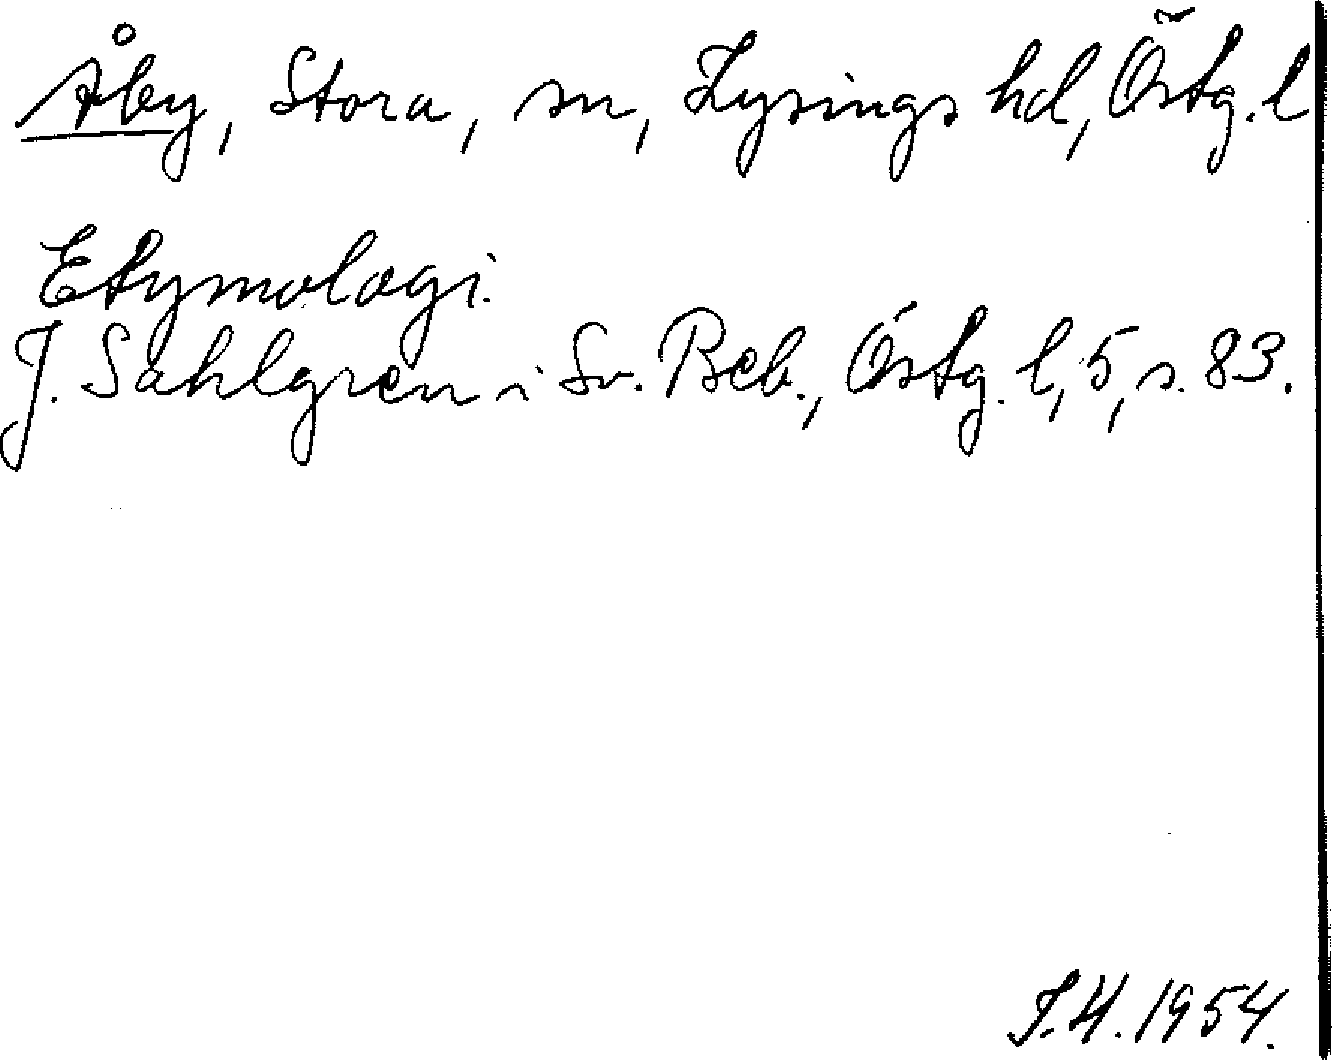 Åby, Stora, sn, Lysings hd, Östg. l
Etymologi.
J. Sahlgren i Sv. Beb., Östg. l, 5, s. 83.
I.H. 1954.